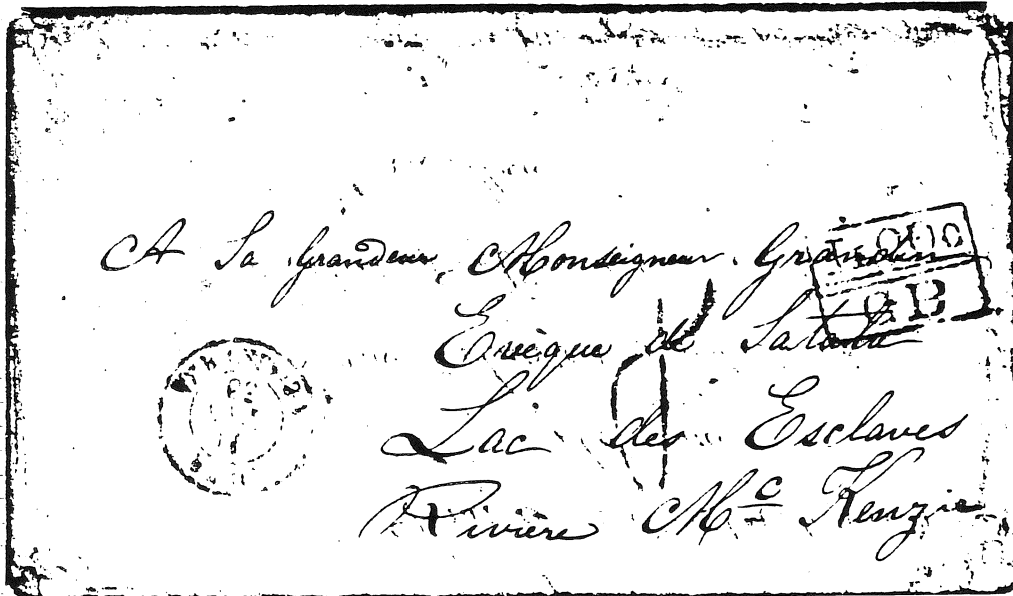 A Sa Grandeur Monseigneur Grandin
Evèque de Satala
Lac des Esclaves
Rivière Mc Kenzie